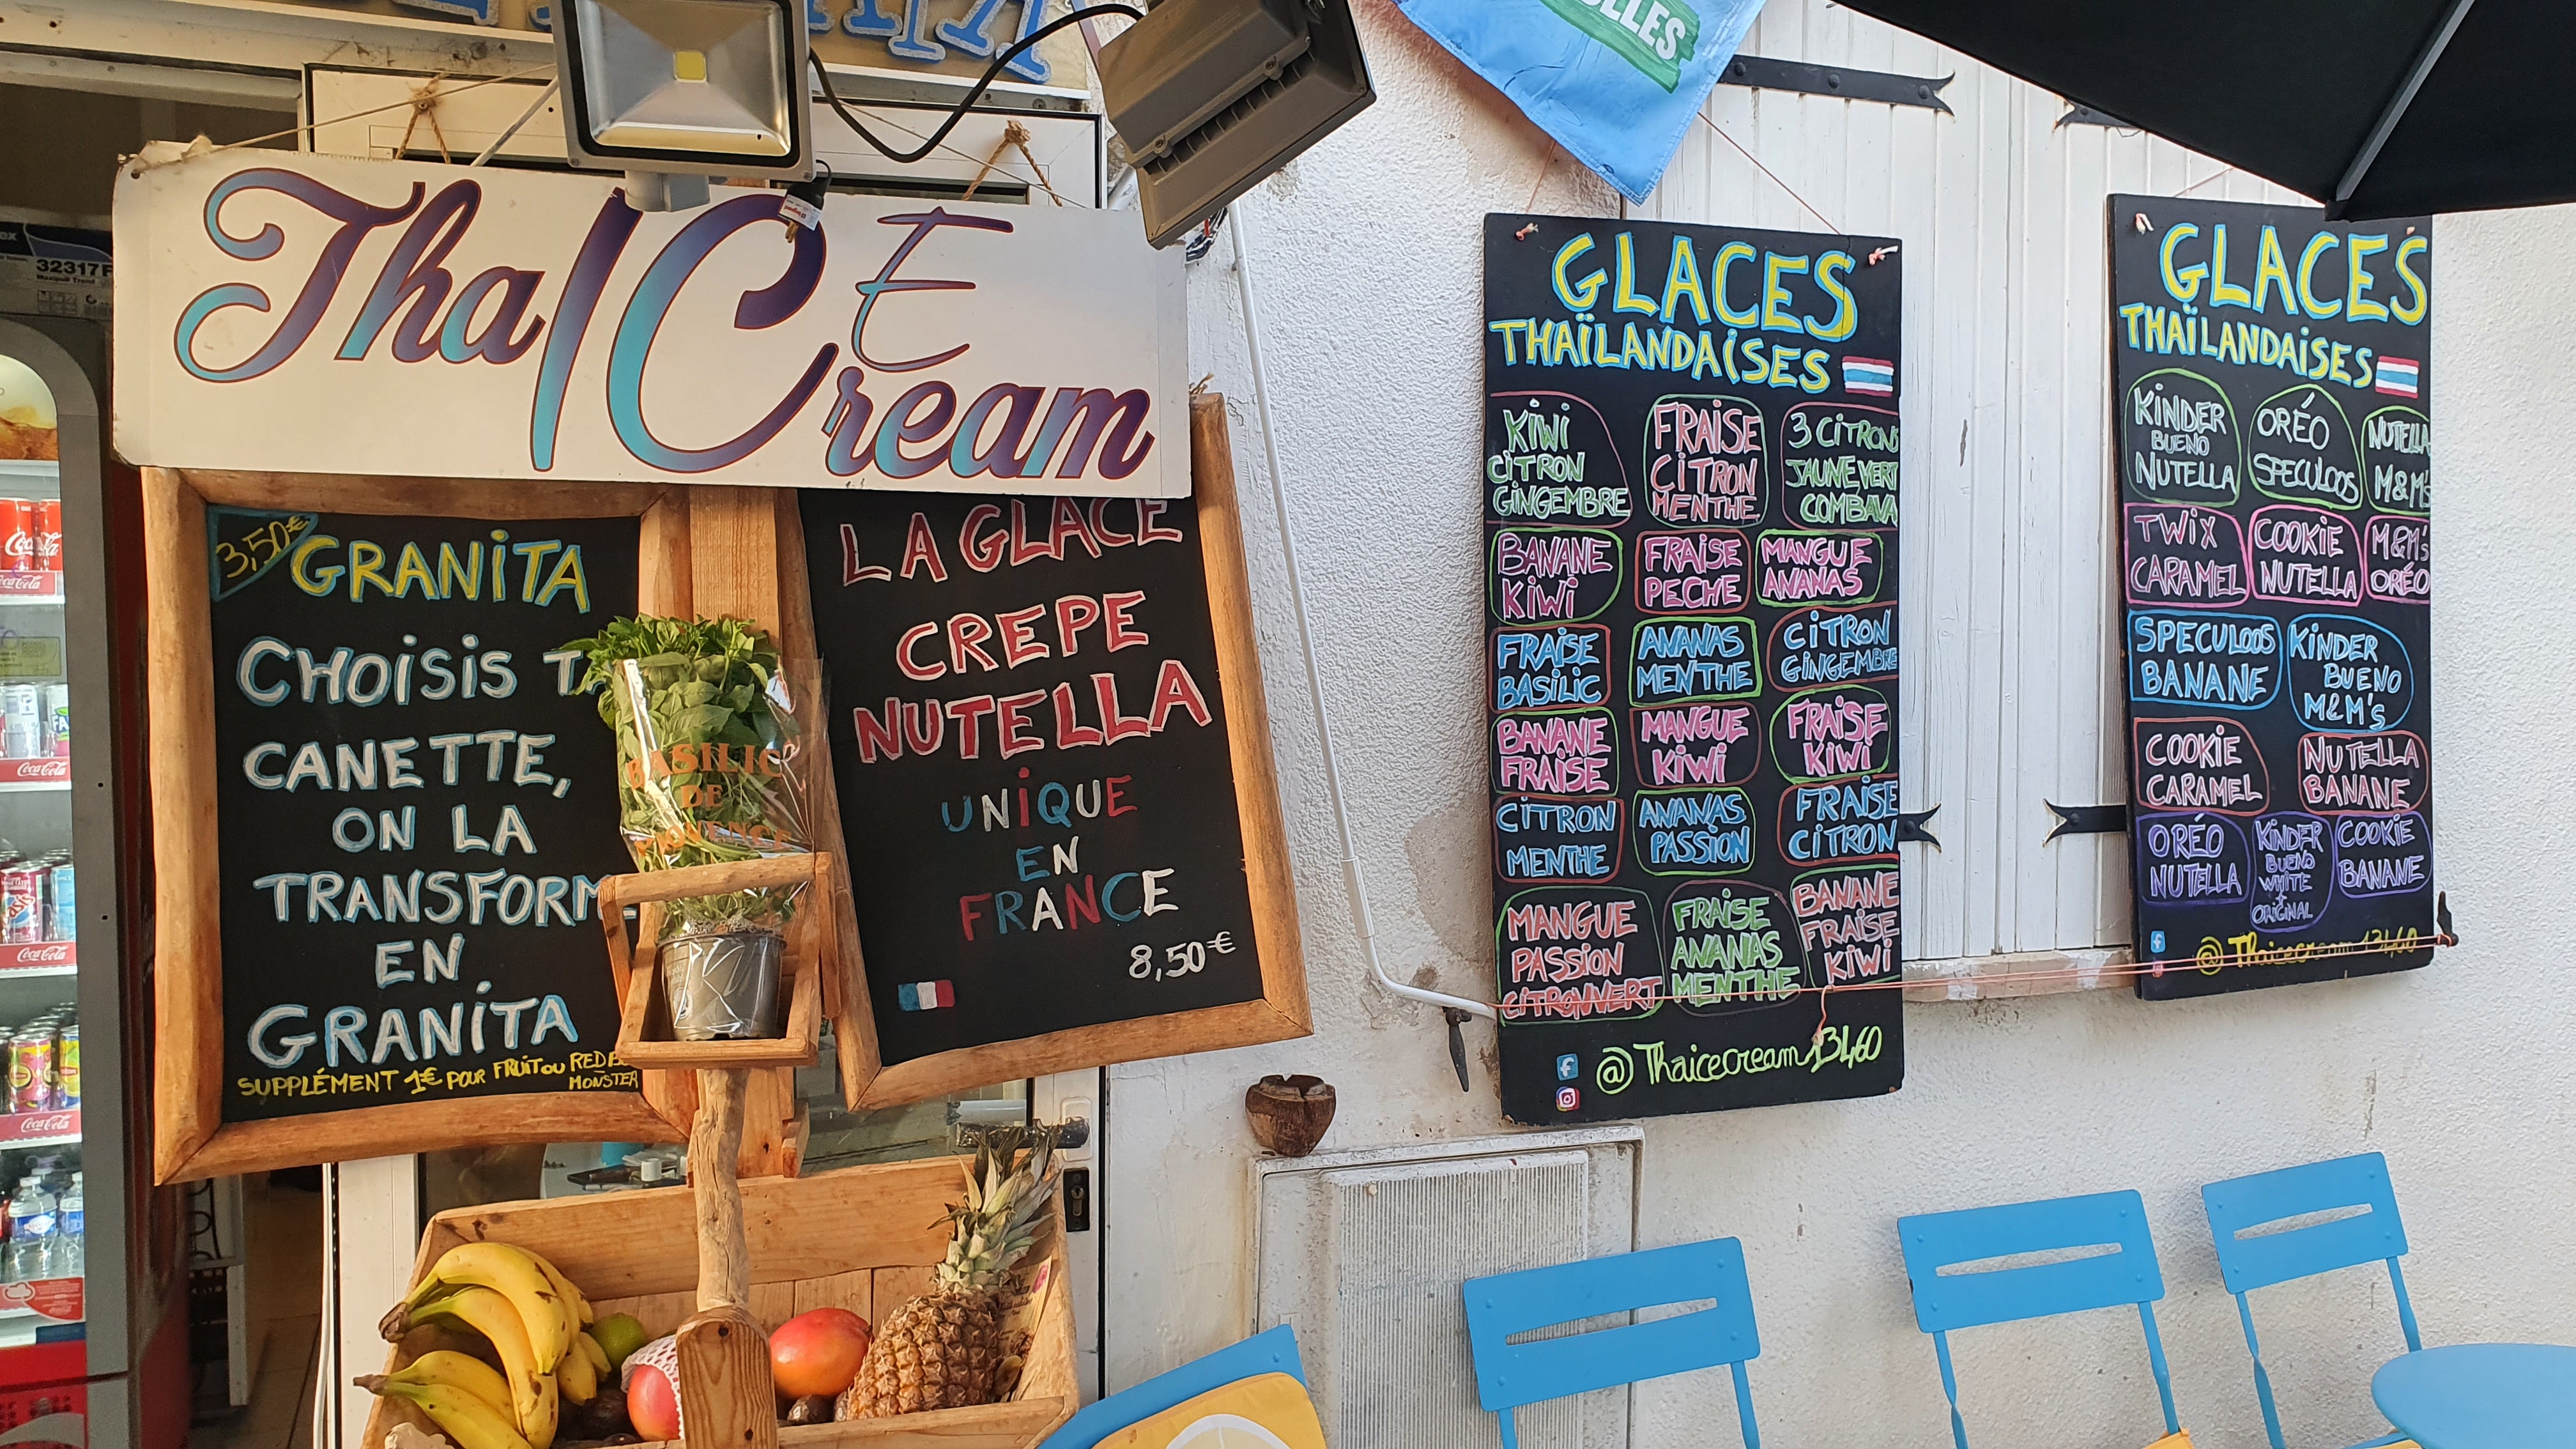 32317F
Thaï ICE
Cream
3,50€
GRANITA
CHOISIS
CANETTE,
ON LA
TRANSFORM
EN
GRANITA
SUPPLÉMENT 1€ POUR FRUIT OU
MONSTER
BASILIC
DE
PROVENCE
LA GLACE
CREPE
NUTELLA
UNIQUE
EN
FRANCE
8,50€
GLACES
THAÏLANDAISES
KIWI
CITRON
GINGEMBRE
FRAISE
CITRON
MENTHE
3 CITRONS
JAUNE VERT
COMBAVA
BANANE
KIWI
FRAISE
PECHE
MANGUE
ANANAS
FRAISE
BASILIC
ANANAS
MENTHE
CITRON
GINGEMBRE
BANANE
FRAISE
MANGUE
KIWI
FRAISE
KIWI
CITRON
MENTHE
ANANAS
PASSION
FRAISE
CITRON
MANGUE
PASSION
CITRON VERT
FRAISE
ANANAS
MENTHE
BANANE
FRAISE
KIWI
@Thaicecream13460
GLACES
THAÏLANDAISES
KINDER
BUENO
NUTELLA
ORÉO
SPECULOOS
NUTELLA
M&M's
TWIX
CARAMEL
COOKIE
NUTELLA
M&M's
ORÉO
SPECULOOS
BANANE
KINDER
BUENO
M&M's
COOKIE
CARAMEL
NUTELLA
BANANE
ORÉO
NUTELLA
KINDER
BUENO
WHITE
+
ORIGINAL
COOKIE
BANANE
@Thaicecream13460
Coca-Cola
Coca-Cola
Coca-Cola
Coca-Cola
Coca-Cola